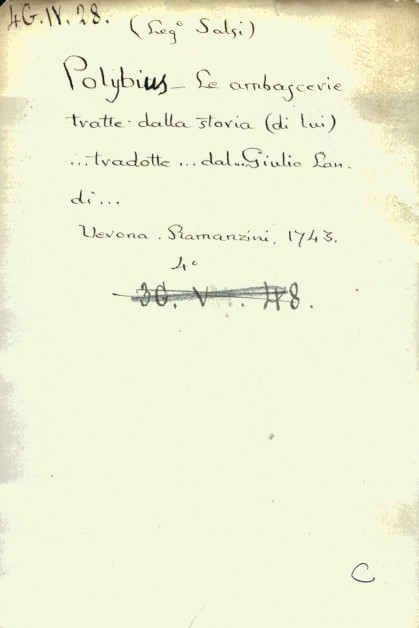 4G.IV.28.
(Leg° Salsi)
Polybius - Le ambascerie
tratte dalla storia (di lui)
...tradotte ... dal...Giulio Lan-
di...
Verona. Ramanzini. 1743.
4°
3G. V . 48.
C